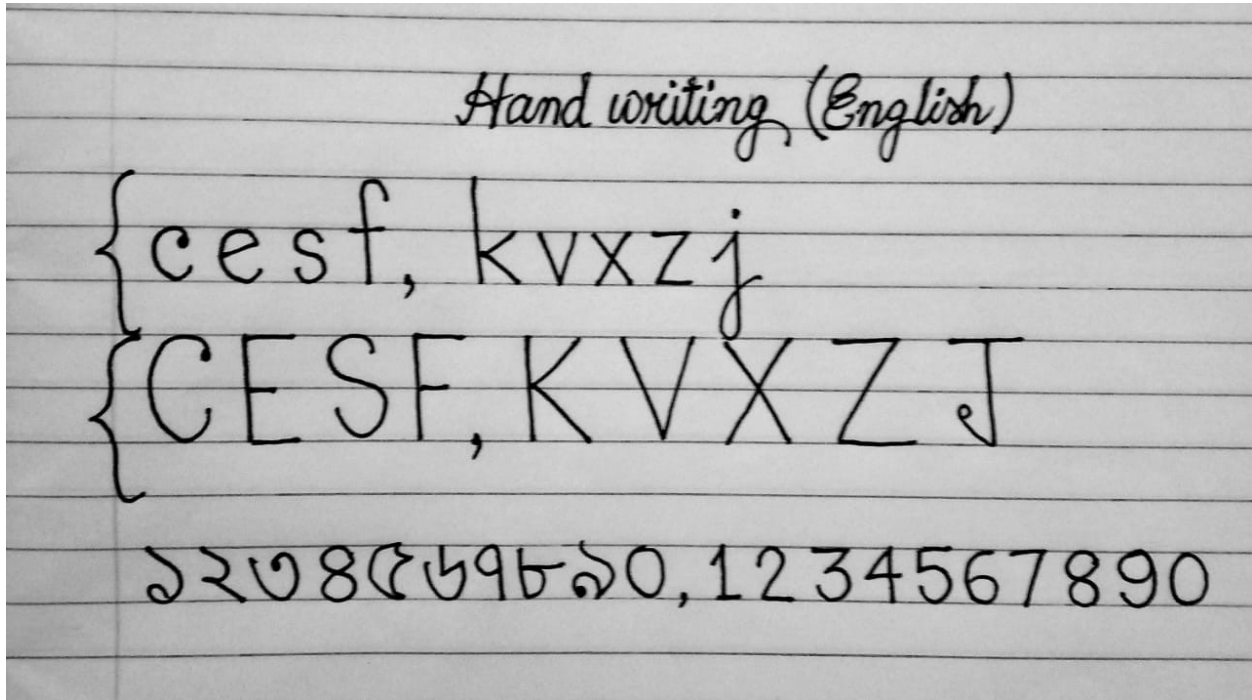 Hand writing (English)
c e s f, k v x z j
C E S F, K V X Z J
১২৩৪৫৬৭৮৯০, 1234567890